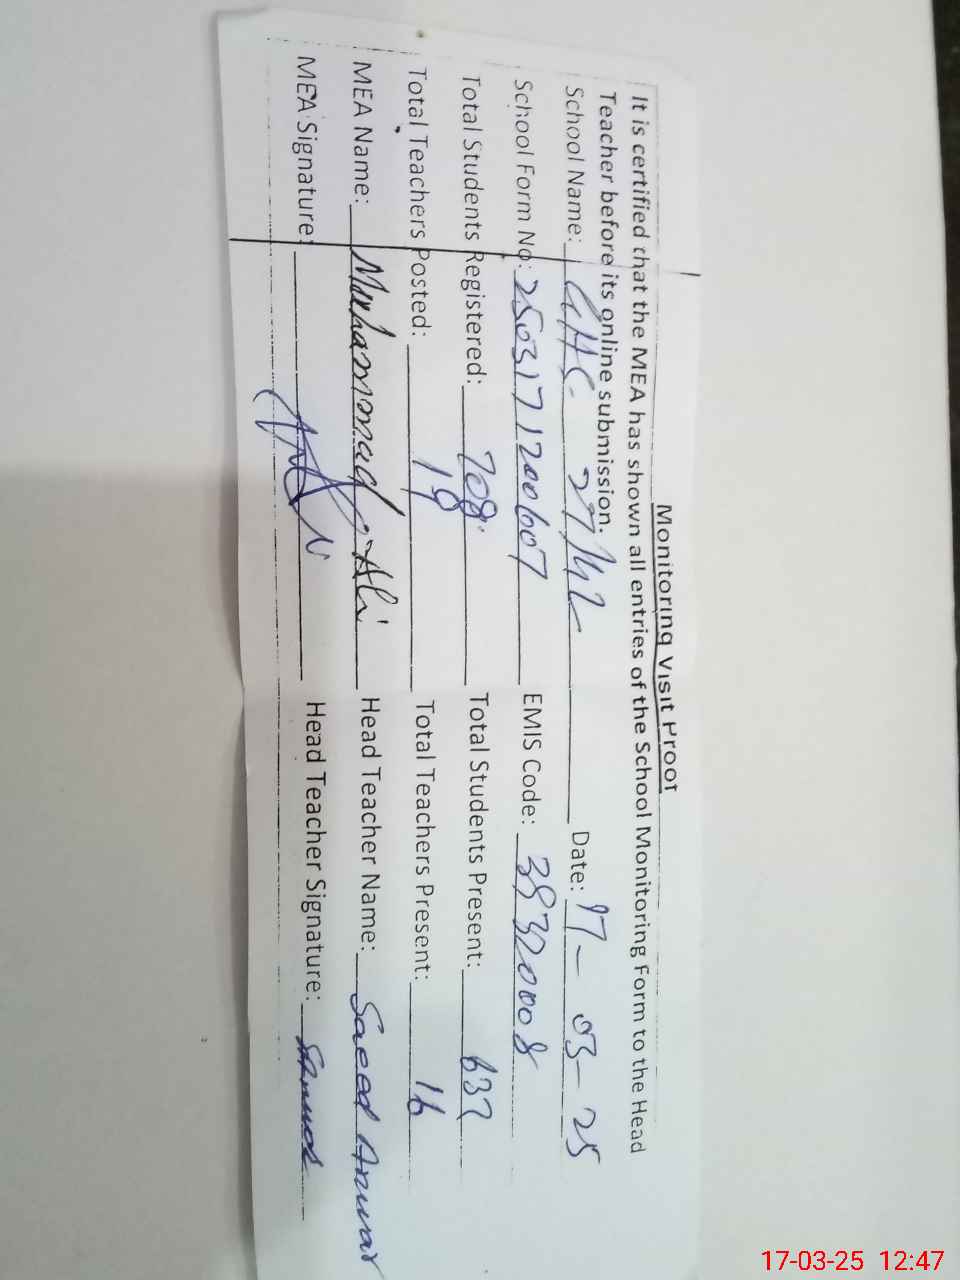 Monitoring Visit Proof
It is certified that the MEA has shown all entries of the School Monitoring Form to the Head
Teacher before its online submission.
School Name: GHS Date: 17-03-25
School Form No: 2503171200607 EMIS Code: 38320008
Total Students Registered: 708 Total Students Present: 637
Total Teachers Posted: Total Teachers Present: 16
MEA Name: Muhammad Ali Head Teacher Name: Saeed Anwar
MEA Signature: Head Teacher Signature:
17-03-25 12:47